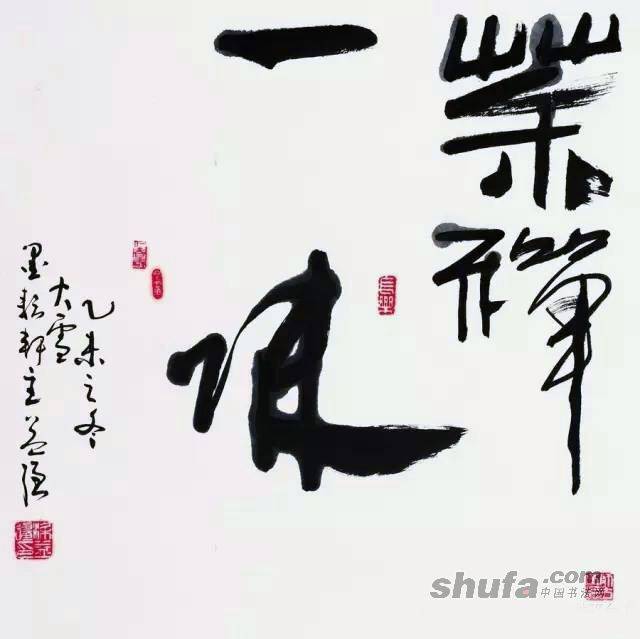 茶禪
一味
乙未之冬
大雪
墨耘軒主益
長樂
shufa.com
中国书法网